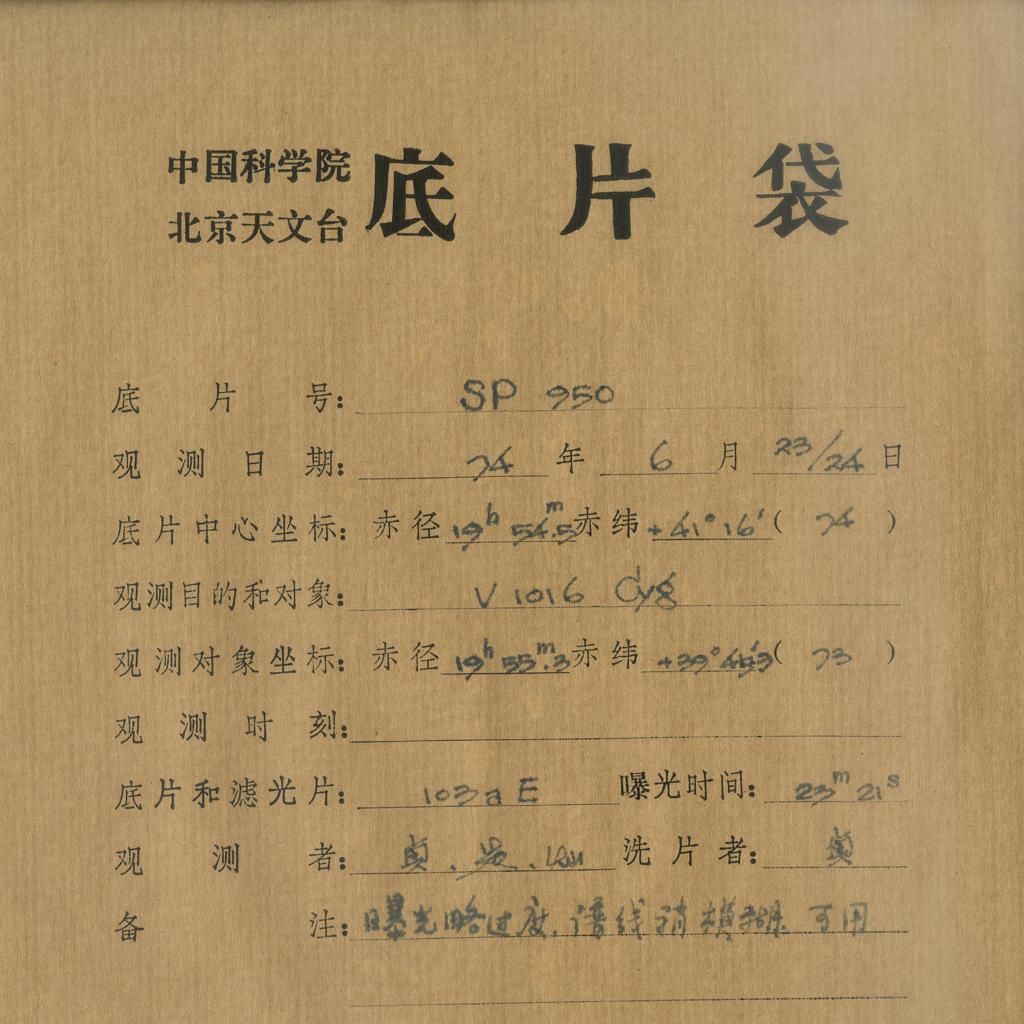 中国科学院
北京天文台
底片袋
底片号: SP 950
观测日期: 74 年 6 月 23/24 日
底片中心坐标: 赤径 19h 54m.5 赤纬 +41° 16' ( 74 )
观测目的和对象: V 1016 Cyg
观测对象坐标: 赤径 19h 55m.3 赤纬 +39° ( 73 )
观测时刻:
底片和滤光片: 103a E 曝光时间: 23m 21s
观测者: 洗片者:
备注: 曝光略过度, 谱线稍模糊 可用